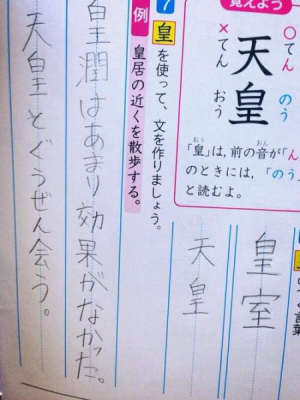 覚えよう
○てんのう
天皇
×てんおう
「皇」は,前の音が「ん
おう おん
のときには,「のう
と読むよ。
く言葉
皇室
天皇
7 皇を使って、文を作りましょう。
例 皇居の近くを散歩する。
皇潤はあまり効果がなかった。
天皇とぐうぜん会う。